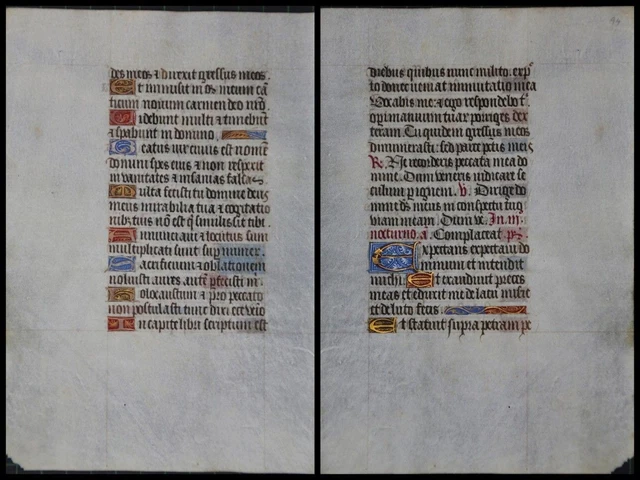 des meos & direxit gressus meos.
Et inmisit in os meum ca
ticum novum carmen deo nrō.
Videbunt multi & timebūt
& spabunt in domino.
Beatus vir cuius est nomē
domini spes eius & non respexit
in vanitates & insanias falsas
Multa fecisti tu domine deus
meus mirabilia tua & cogitatio
nibus tuis nō est q̄ similis sit tibi.
Annunciavi & locutus sum
multiplicati sunt sup numer.
Sacrificium & oblationem
noluisti aures autē pfecisti m
Holocaustum & pro peccato
non postulasti tunc dixi ecce veio
In capite libri scriptum est
diebus quibus nunc milito. exp
to donec veniat immutatio mea
Vocabis me: & ego respondebo t
operi manuum tuar porriges dex
teram Tu quidem gressus meos
dinumerasti. sed parce pctis meis
R. Ne recorderis peccata mea do
mine. Dum veneris iudicare se
culum p ignem. V. Dirige do
mine ds meus in conspectu tuo
viam meam. Dum ve. In iii
nocturno. a. Complaceat ps
Expectans expectavi do
minum et intendit
michi. Et exaudivit preces
meas et eduxit me de lacu miserie
et de luto fecis.
Et statuit supra petram pe